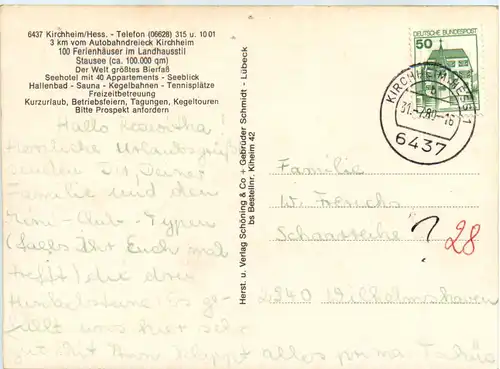 6437 Kirchheim/Hess. - Telefon (06628) 315 u. 10 01
3 km vom Autobahndreieck Kirchheim
100 Ferienhäuser im Landhausstil
Stausee (ca. 100.000 qm)
Der Welt größtes Bierfaß
Seehotel mit 40 Appartements - Seeblick
Hallenbad - Sauna - Kegelbahnen - Tennisplätze
Freizeitbetreuung
Kurzurlaub, Betriebsfeiern, Tagungen, Kegeltouren
Bitte Prospekt anfordern
Hallo
Herzliche Urlaubsgrüße
senden Dir, Deiner
Familie und den
Mini-Club-Typen
(falls Ihr Euch mal
trefft) die drei
Es ge-
fällt uns hier sehr
gut klappt alles prima. Tschüs
Herst. u. Verlag Schöning & Co + Gebrüder Schmidt - Lübeck
bs Bestellnr. Kiheim 42
DEUTSCHE BUNDESPOST
50
KIRCHHEIM, HESS 1
31.-7.80-16
6437
Familie
W. Frerichs
Schaarreihe
? 28
2940 Wilhelmshaven